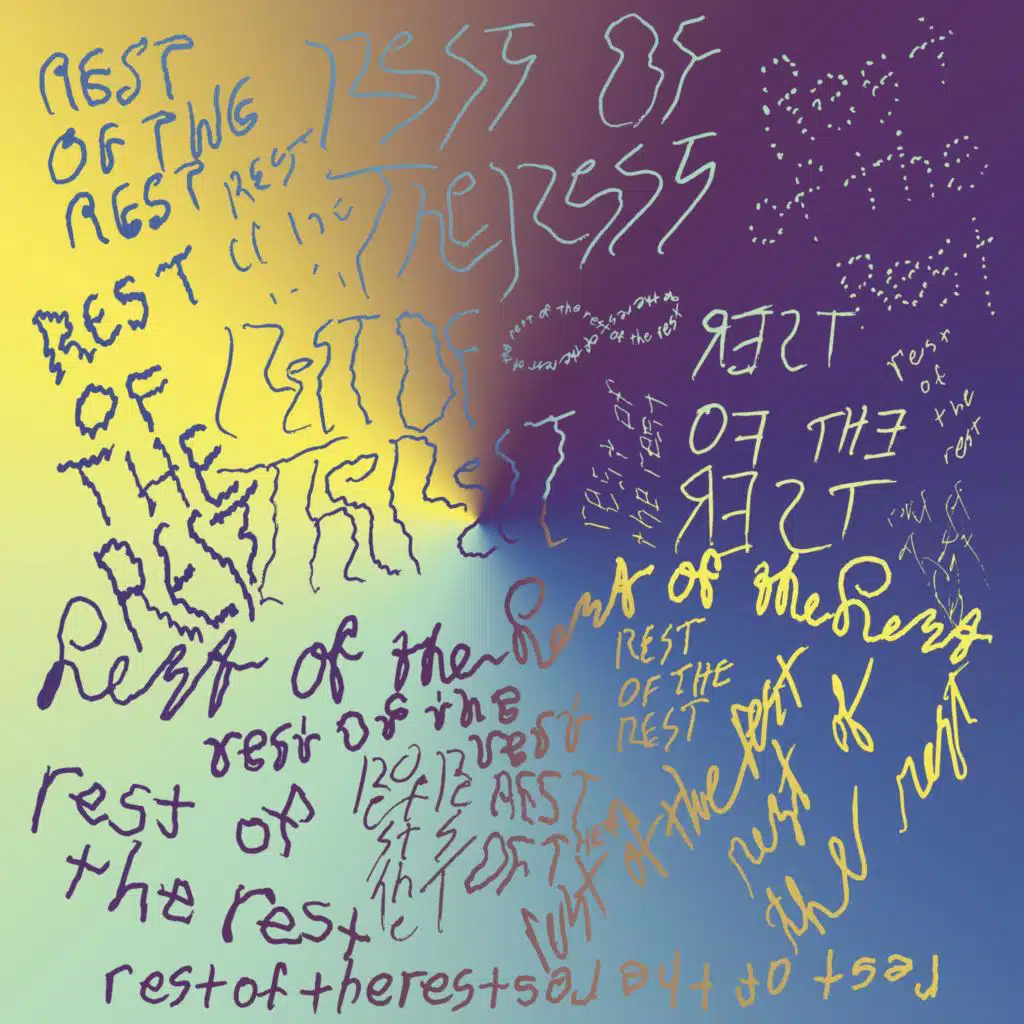 REST
OF THE
REST
REST OF
THE REST
REST
REST
OF
THE
REST
REST OF
THE REST
the rest of the rest of the rest of the rest of the rest
REST
OF THE
REST
rest
of
the
rest
rest of
the rest
Rest of the Rest of the Rest
REST
OF THE
REST
rest of the
rest
rest of
the rest
REST
OF THE
rest of the rest
rest of
the rest
restoftherest
rest of the rest